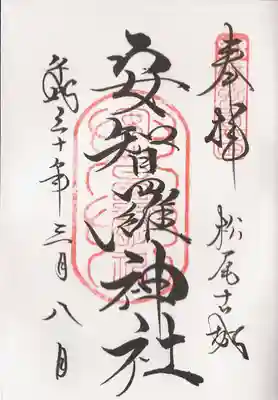 奉拝
松尾古城
安智羅神社
平成三十年三月八日